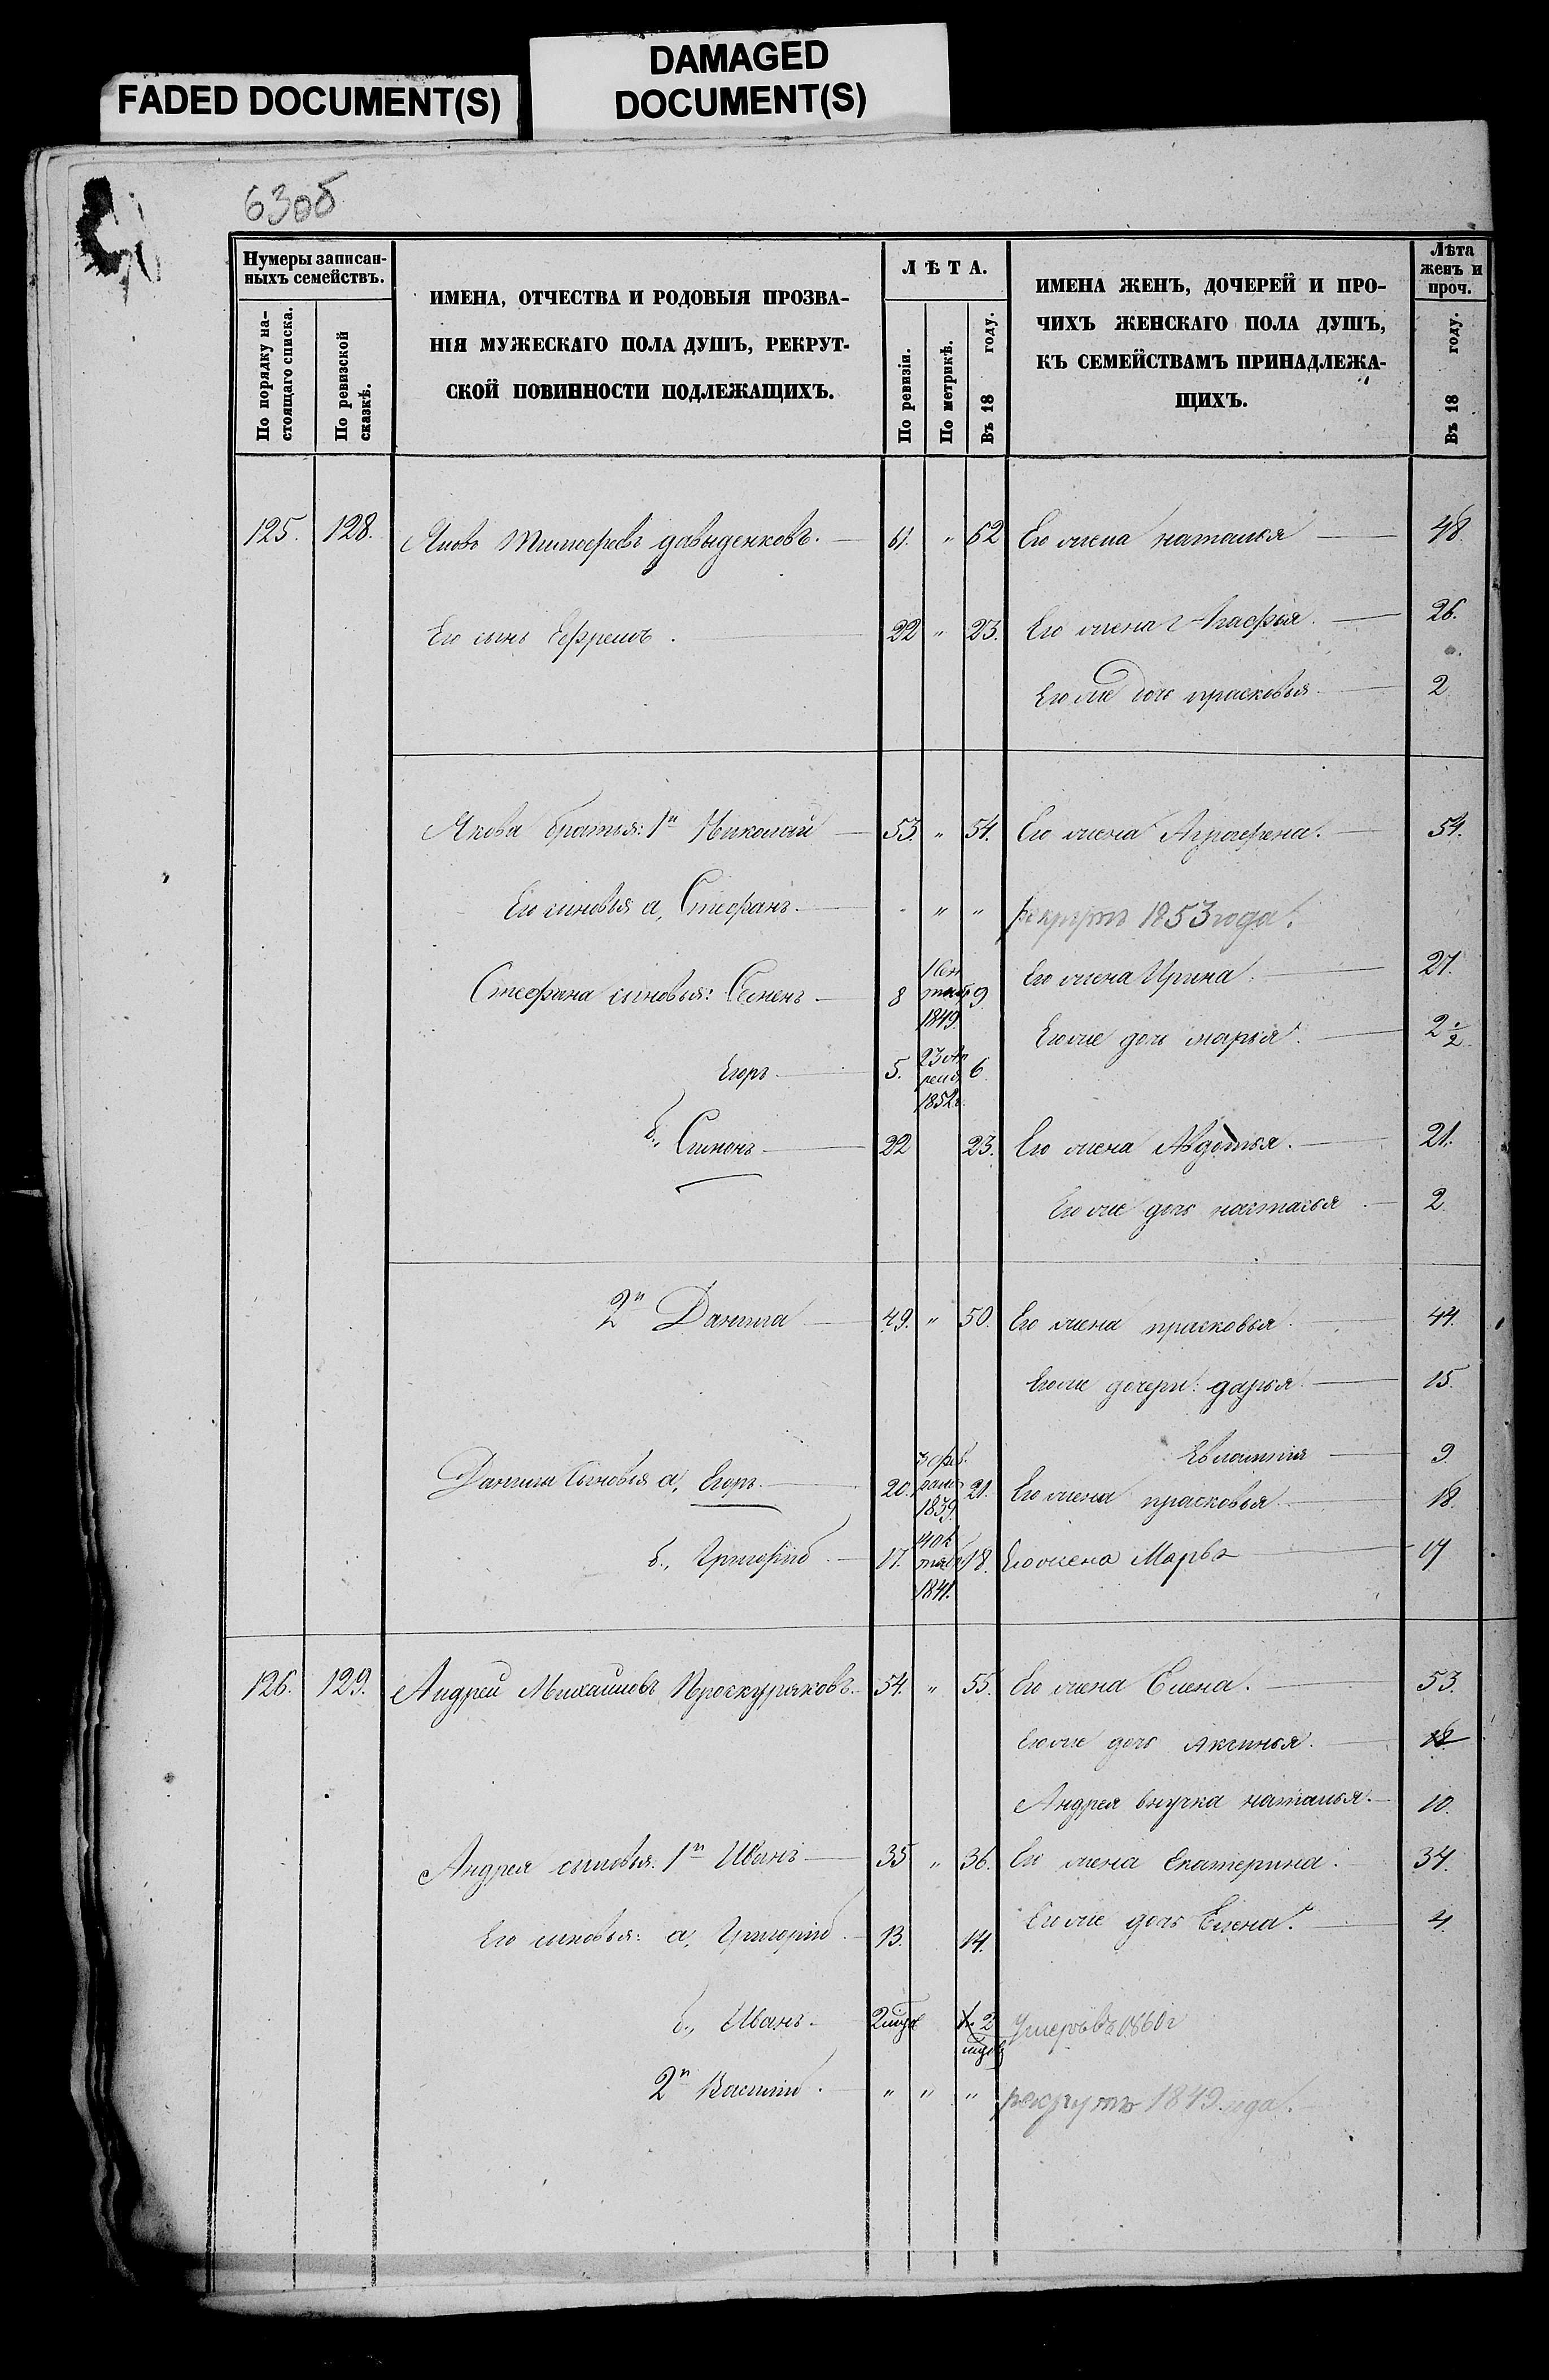 FADED DOCUMENT(S)
DAMAGED
DOCUMENT(S)
63об
Нумеры записан-
ныхъ семействъ.
По порядку на-
стоящаго списка.
По ревизской
сказкѣ.
ИМЕНА, ОТЧЕСТВА И РОДОВЫЯ ПРОЗВА-
НІЯ МУЖЕСКАГО ПОЛА ДУШЪ, РЕКРУТ-
СКОЙ ПОВИННОСТИ ПОДЛЕЖАЩИХЪ.
ЛѢТА.
По ревизіи.
По метрикѣ.
Въ 18 году.
ИМЕНА ЖЕНЪ, ДОЧЕРЕЙ И ПРО-
ЧИХЪ ЖЕНСКАГО ПОЛА ДУШЪ,
КЪ СЕМЕЙСТВАМЪ ПРИНАДЛЕЖА-
ЩИХЪ.
Лѣта
женъ и
проч.
Въ 18 году.
125. 128. Яковъ Тимофеевъ давыденковъ. 61. " 62 Его жена наталья 48.
Его сынъ Ефремъ. 22 " 23. Его жена Агафья. 26.
Его же дочь прасковья 2
Якова братья: 1й Николай 53. " 54. Его жена Аграфена. 54.
Его сыновья а, Стефанъ. " " рекрутъ 1853 года.
Стефана сыновья: Семенъ 8 1 Сен
тяб 1849. 9 Его жена Ирина. 27.
Его же дочь марья. 2 1/2
Егоръ 5. 23 ап
реля 1852г. 6
б., Симонъ 22 23. Его жена Авдотья. 21.
Его же дочь настасья 2
2й Данила 49. " 50. Его жена прасковья. 44.
Его же дочери: дарья 15.
Евлампия 9.
Данилы Сыновья а, Егоръ 20. фев
раля 1839. 21. Его жена прасковья. 18.
б., Григорій 17. Ок
тяб 1841. 18. Его жена Марья 17
126. 129. Андрей Михайловъ Проскуряковъ. 54. " 55. Его жена Елена. 53.
Его же дочь Аксинья. 18.
Андрея внучка наталья. 10.
Андрея сыновья: 1й Иванъ 35 " 36. Его жена Екатерина. 34.
Его же дочь Елена. 4.
Его сыновья: а, Григорій 13. 14.
б., Иванъ. 2 2 Умеръ въ 1860г
2й Василій. " " " рекрутъ 1849 года.